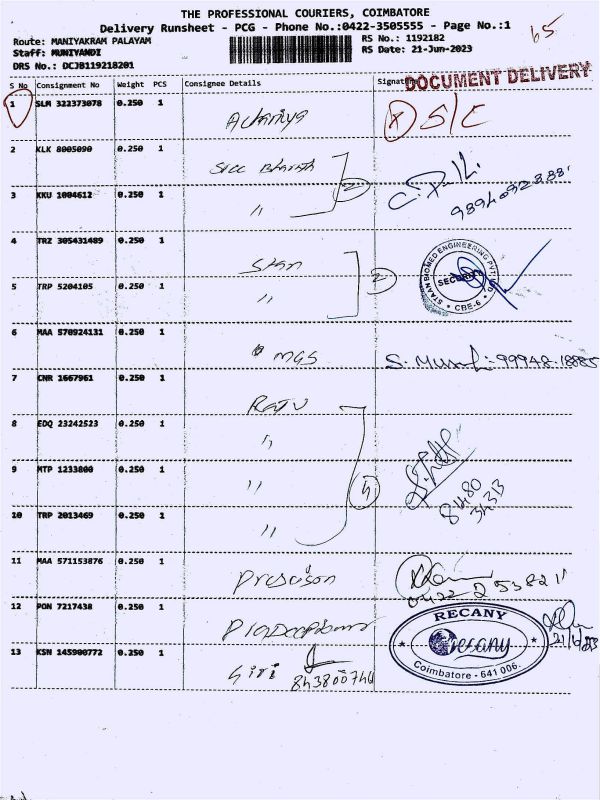 THE PROFESSIONAL COURIERS, COIMBATORE
Delivery Runsheet - PCG - Phone No.:0422-3505555 - Page No.:1
65
Route: MANIYAKRAM PALAYAM
RS No.: 1192182
Staff: MUNIYANDI
RS Date: 21-Jun-2023
DRS No.: DCJB119218201
S No Consignment No Weight PCS Consignee Details Signature
DOCUMENT DELIVERY
1 SLM 322373078 0.250 1 S/C
2 KLK 8005090 0.250 1
3 KKU 1004612 0.250 1 "
4 TRZ 305431489 0.250 1 Stan
5 TRP 5204105 0.250 1 "
STAAN BIOMED ENGINEERING PVT. LTD
SECURITY
CBE-6
6 MAA 570924131 0.250 1 MGS
7 CNR 1667961 0.250 1
8 EDQ 23242523 0.250 1 "
9 MTP 1233800 0.250 1 "
8480
3433
10 TRP 2013469 0.250 1 "
11 MAA 571153876 0.250 1 Precison
12 PON 7217438 0.250 1
RECANY
recany
Coimbatore - 641 006.
13 KSN 145900772 0.250 1 Siri